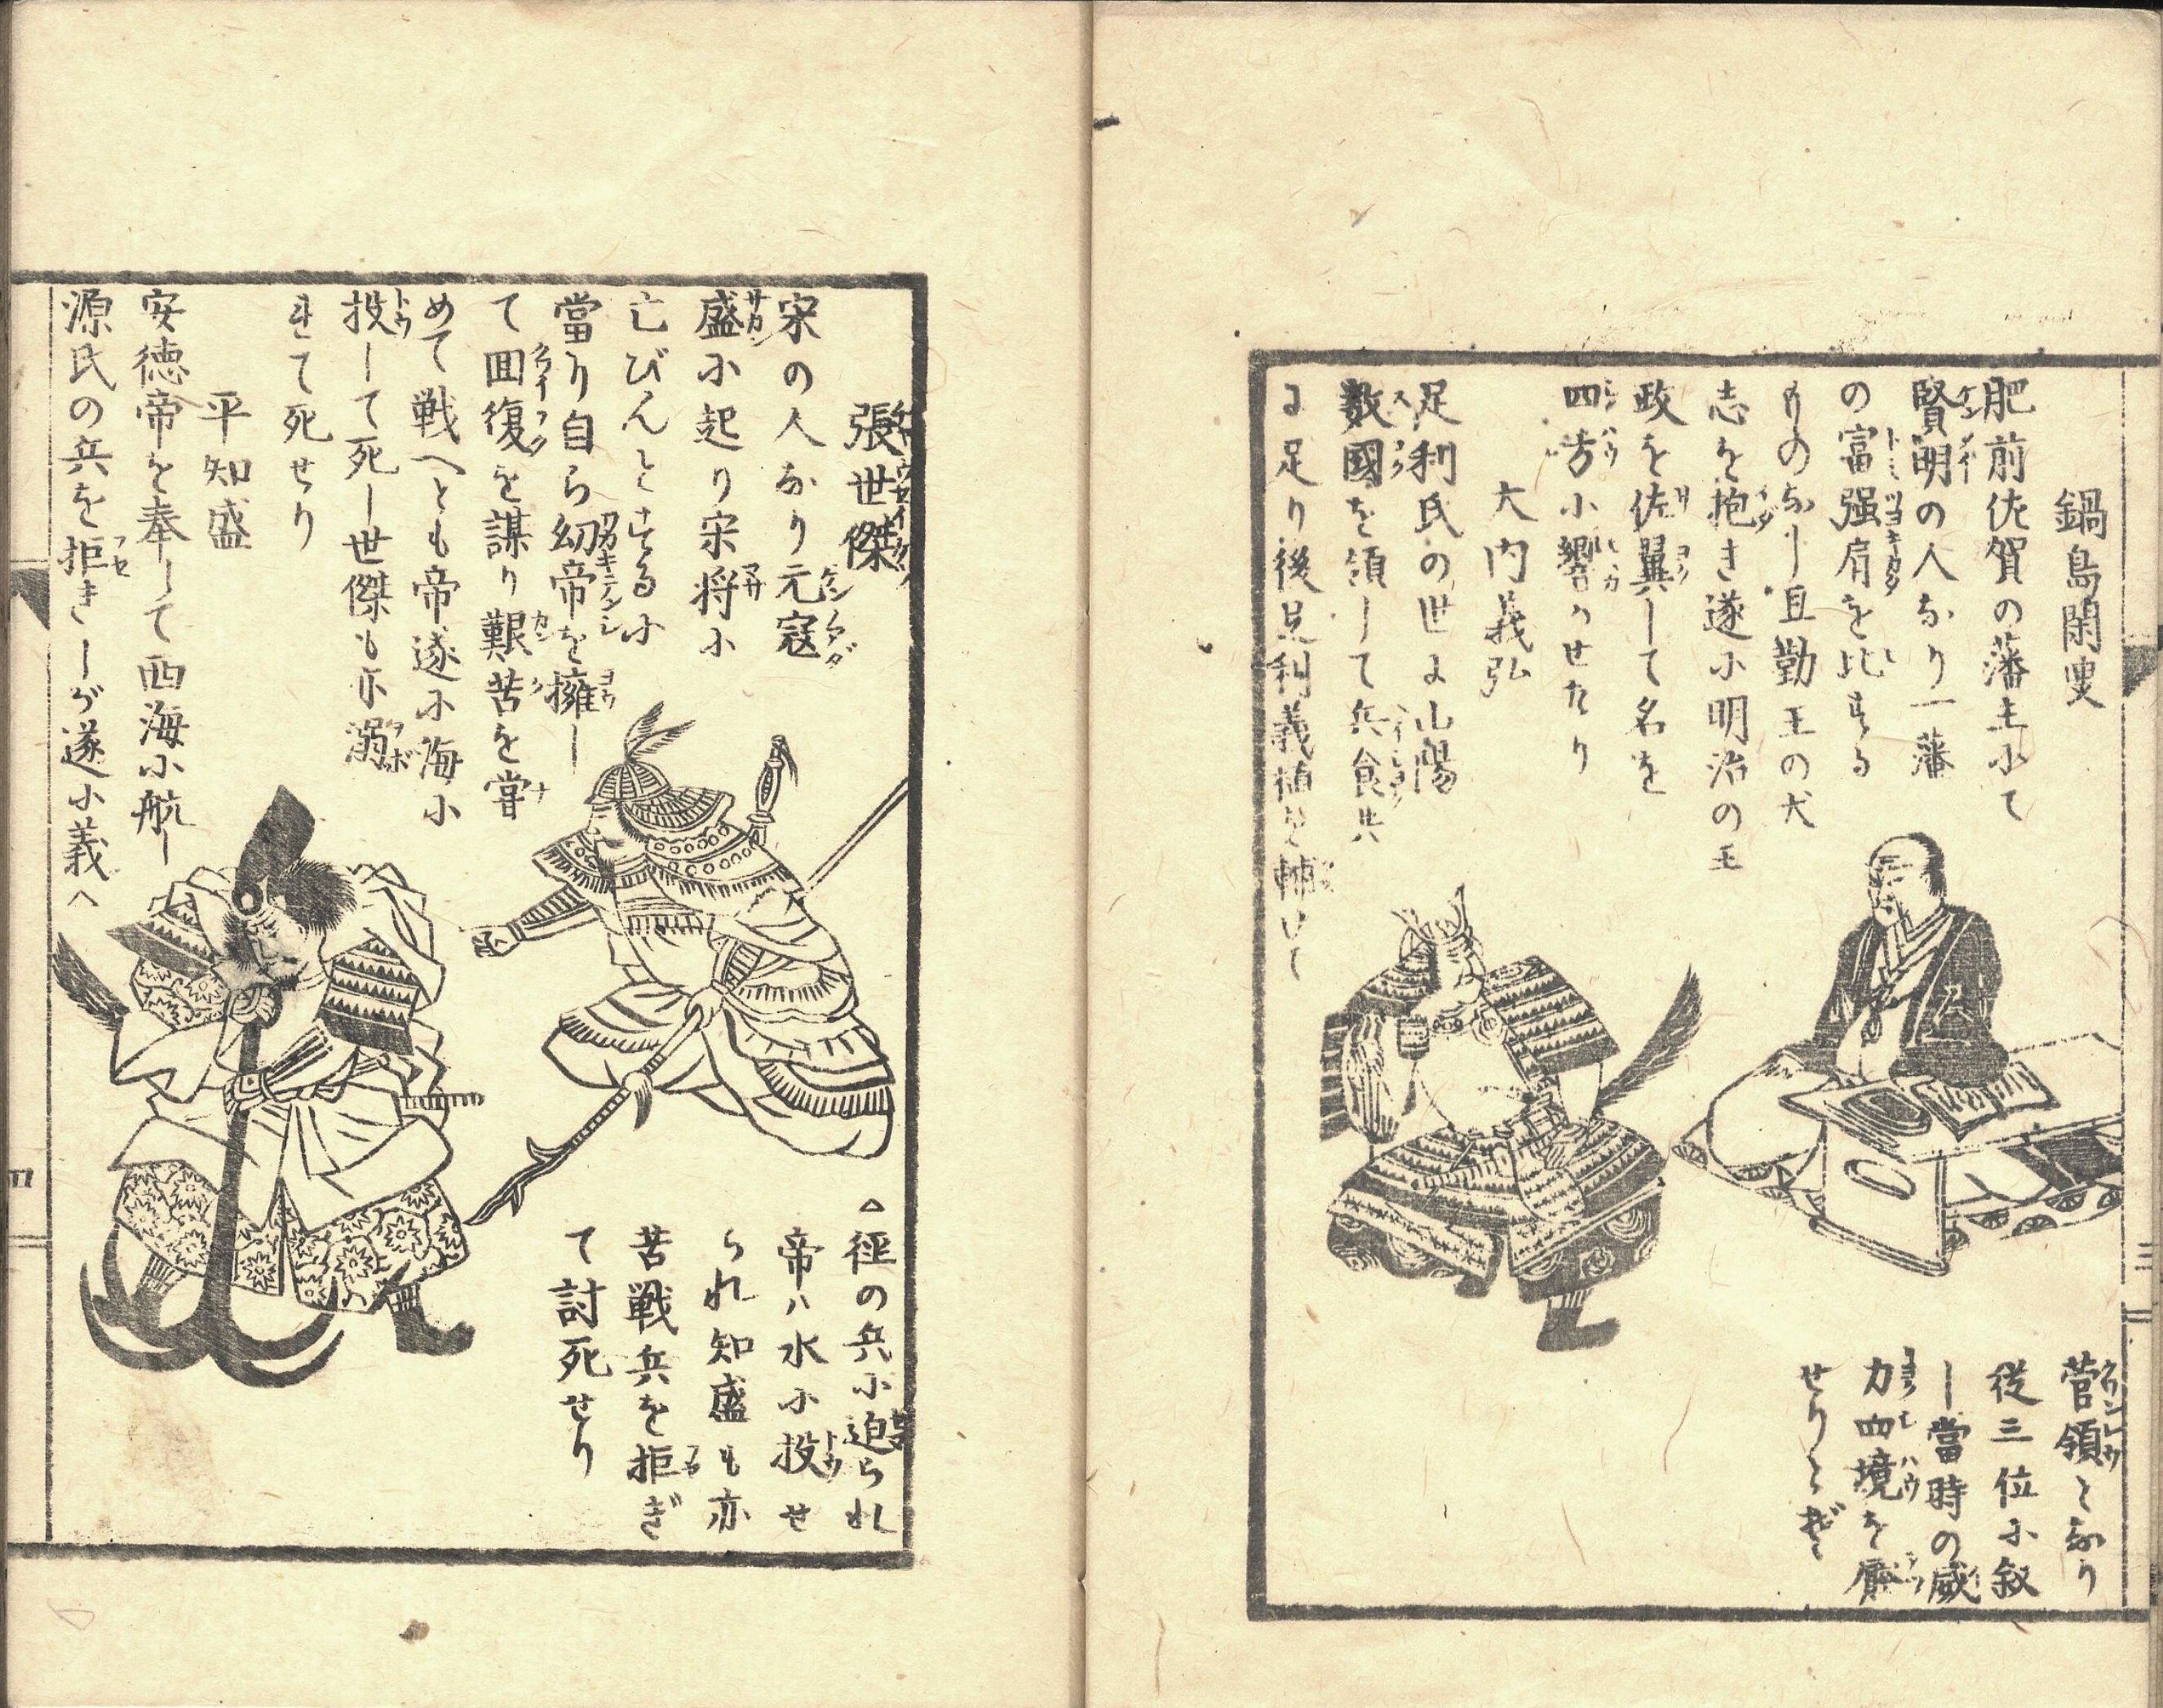 鍋島閑叟
肥前佐賀の藩主小て
賢明の人なり一藩
の富强肩を比する
ものなし且勤王の犬
志を抱き遂小明治の王
政を佐翼して名を
四方小響かせたり
大内義弘
足利氏の世に山陽
数國を領して兵食共
に足り後足利義植を輔けて
菅領となり
從三位小叙
し當時の威
力四境を壓
せりとぞ
張世傑
宋の人なり元寇
盛小起り宋将小
亡びんとする小
當り自ら幼帝を擁し
て囬復を謀り艱苦を甞
めて戦へとも帝遂小海小
投して死し世傑も亦溺
れて死せり
平知盛
安徳帝を奉して西海小航し
源氏の兵を拒きしが遂小義へ
△徑の兵小迫られ
帝ハ水小投せ
られ知盛も亦
苦戦兵を拒ぎ
て討死せり
三